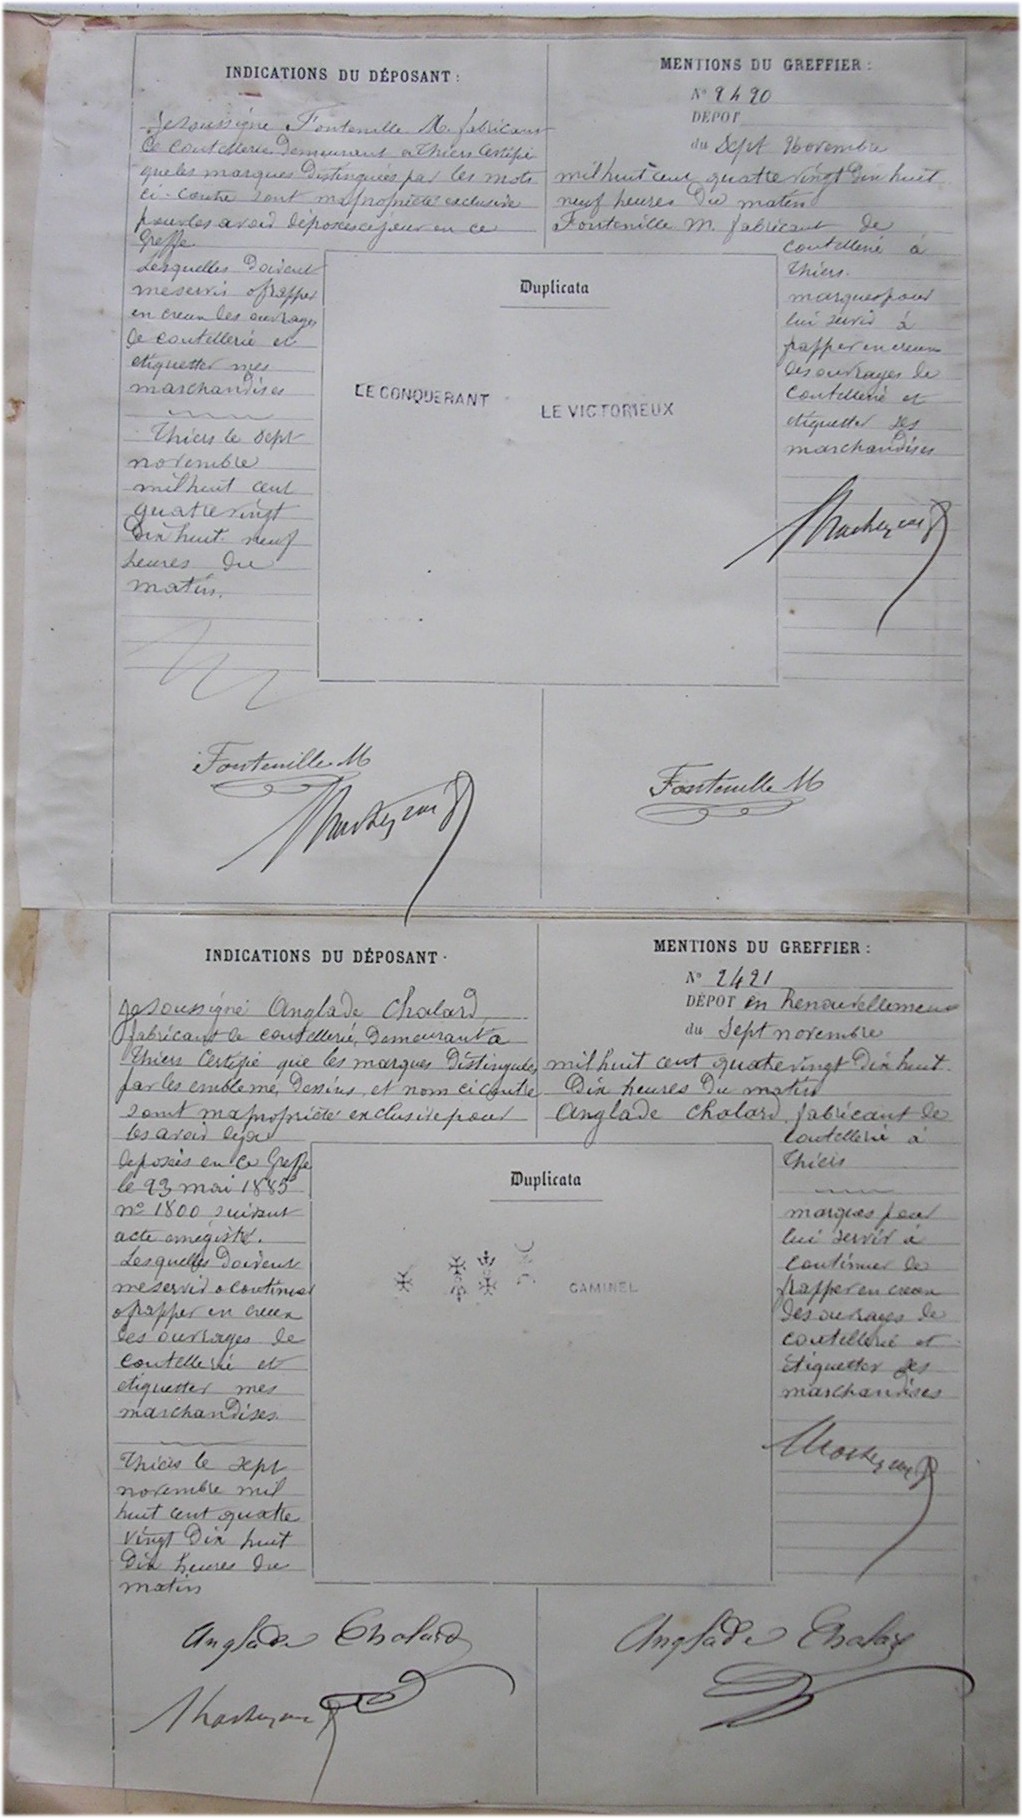 INDICATIONS DU DÉPOSANT :
Je soussigné Fontenille M. fabricant
de coutellerie Demeurant a Thiers Certifie
que les marques Distinguées par les mots
ci-contre sont ma propriété exclusive
pour les avoir déposés ce jour en ce
Greffe
Lesquelles Doivent
me servir a frapper
en creux les ouvrages
de coutellerie et
etiquetter mes
marchandises
Thiers le sept
novembre
mil huit cent
quatre vingt
Dix huit neuf
heures du
matin.
MENTIONS DU GREFFIER :
N° 2420
DÉPOT
du Sept Novembre
mil huit cent quatre vingt Dix huit
neuf heures Du matin
Fontenille M. fabricant de
coutellerie à
Thiers.
marques pour
lui servir à
frapper en creux
des ouvrages de
coutellerie et
etiquetter ses
marchandises
Duplicata
LE CONQUERANT
LE VICTORIEUX
Fontenille M
Fontenille M
INDICATIONS DU DÉPOSANT :
Je soussigné Anglade Cholard,
fabricant de coutellerie, Demeurant a
Thiers Certifie que les marques Distinguées
par les embleme, Dessins, et nom ci contre
sont ma propriété exclusive pour
les avoir deja
deposés en ce Greffe
le 23 mai 1885
n° 1800 suivant
acte enregistré.
Lesquelles Doivent
me servir a continuer
a frapper en creux
les ouvrages de
coutellerie et
etiquetter mes
marchandises.
Thiers le sept
novembre mil
huit cent quatre
vingt Dix huit
Dix heures du
matin
MENTIONS DU GREFFIER :
N° 2421
DÉPOT en Renouvellement
du Sept novembre
mil huit cent quatre vingt Dix huit.
Dix heures Du matin
Anglade Cholard, fabricant de
coutellerie à
Thiers
marques pour
lui servir à
continuer de
frapper en creux
des ouvrages de
coutellerie et
etiquetter ses
marchandises
Duplicata
CAMINEL
Anglade Cholard
Anglade Cholard